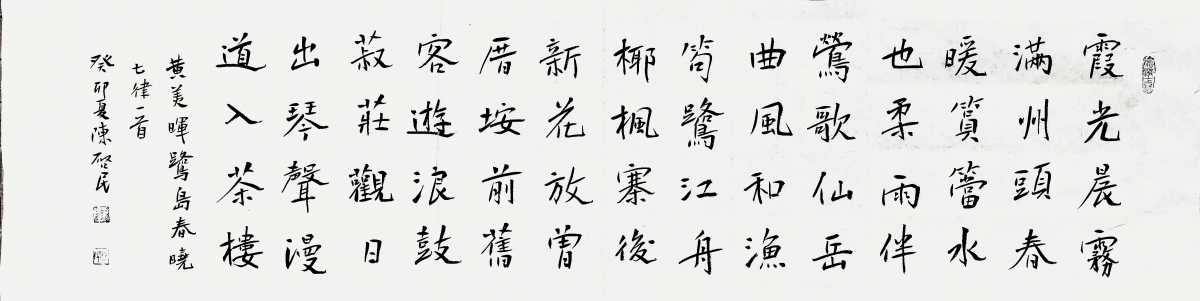 霞光晨霧
滿州頭春
暖篔簹水
也柔雨伴
鶯歌仙岳
曲風和漁
筍鷺江舟
椰楓寨後
新花放曾
厝垵前舊
客遊浪鼓
菽莊觀日
出琴聲漫
道入茶樓
黃美暉鷺島春曉
七律一首
癸卯夏陳啓民